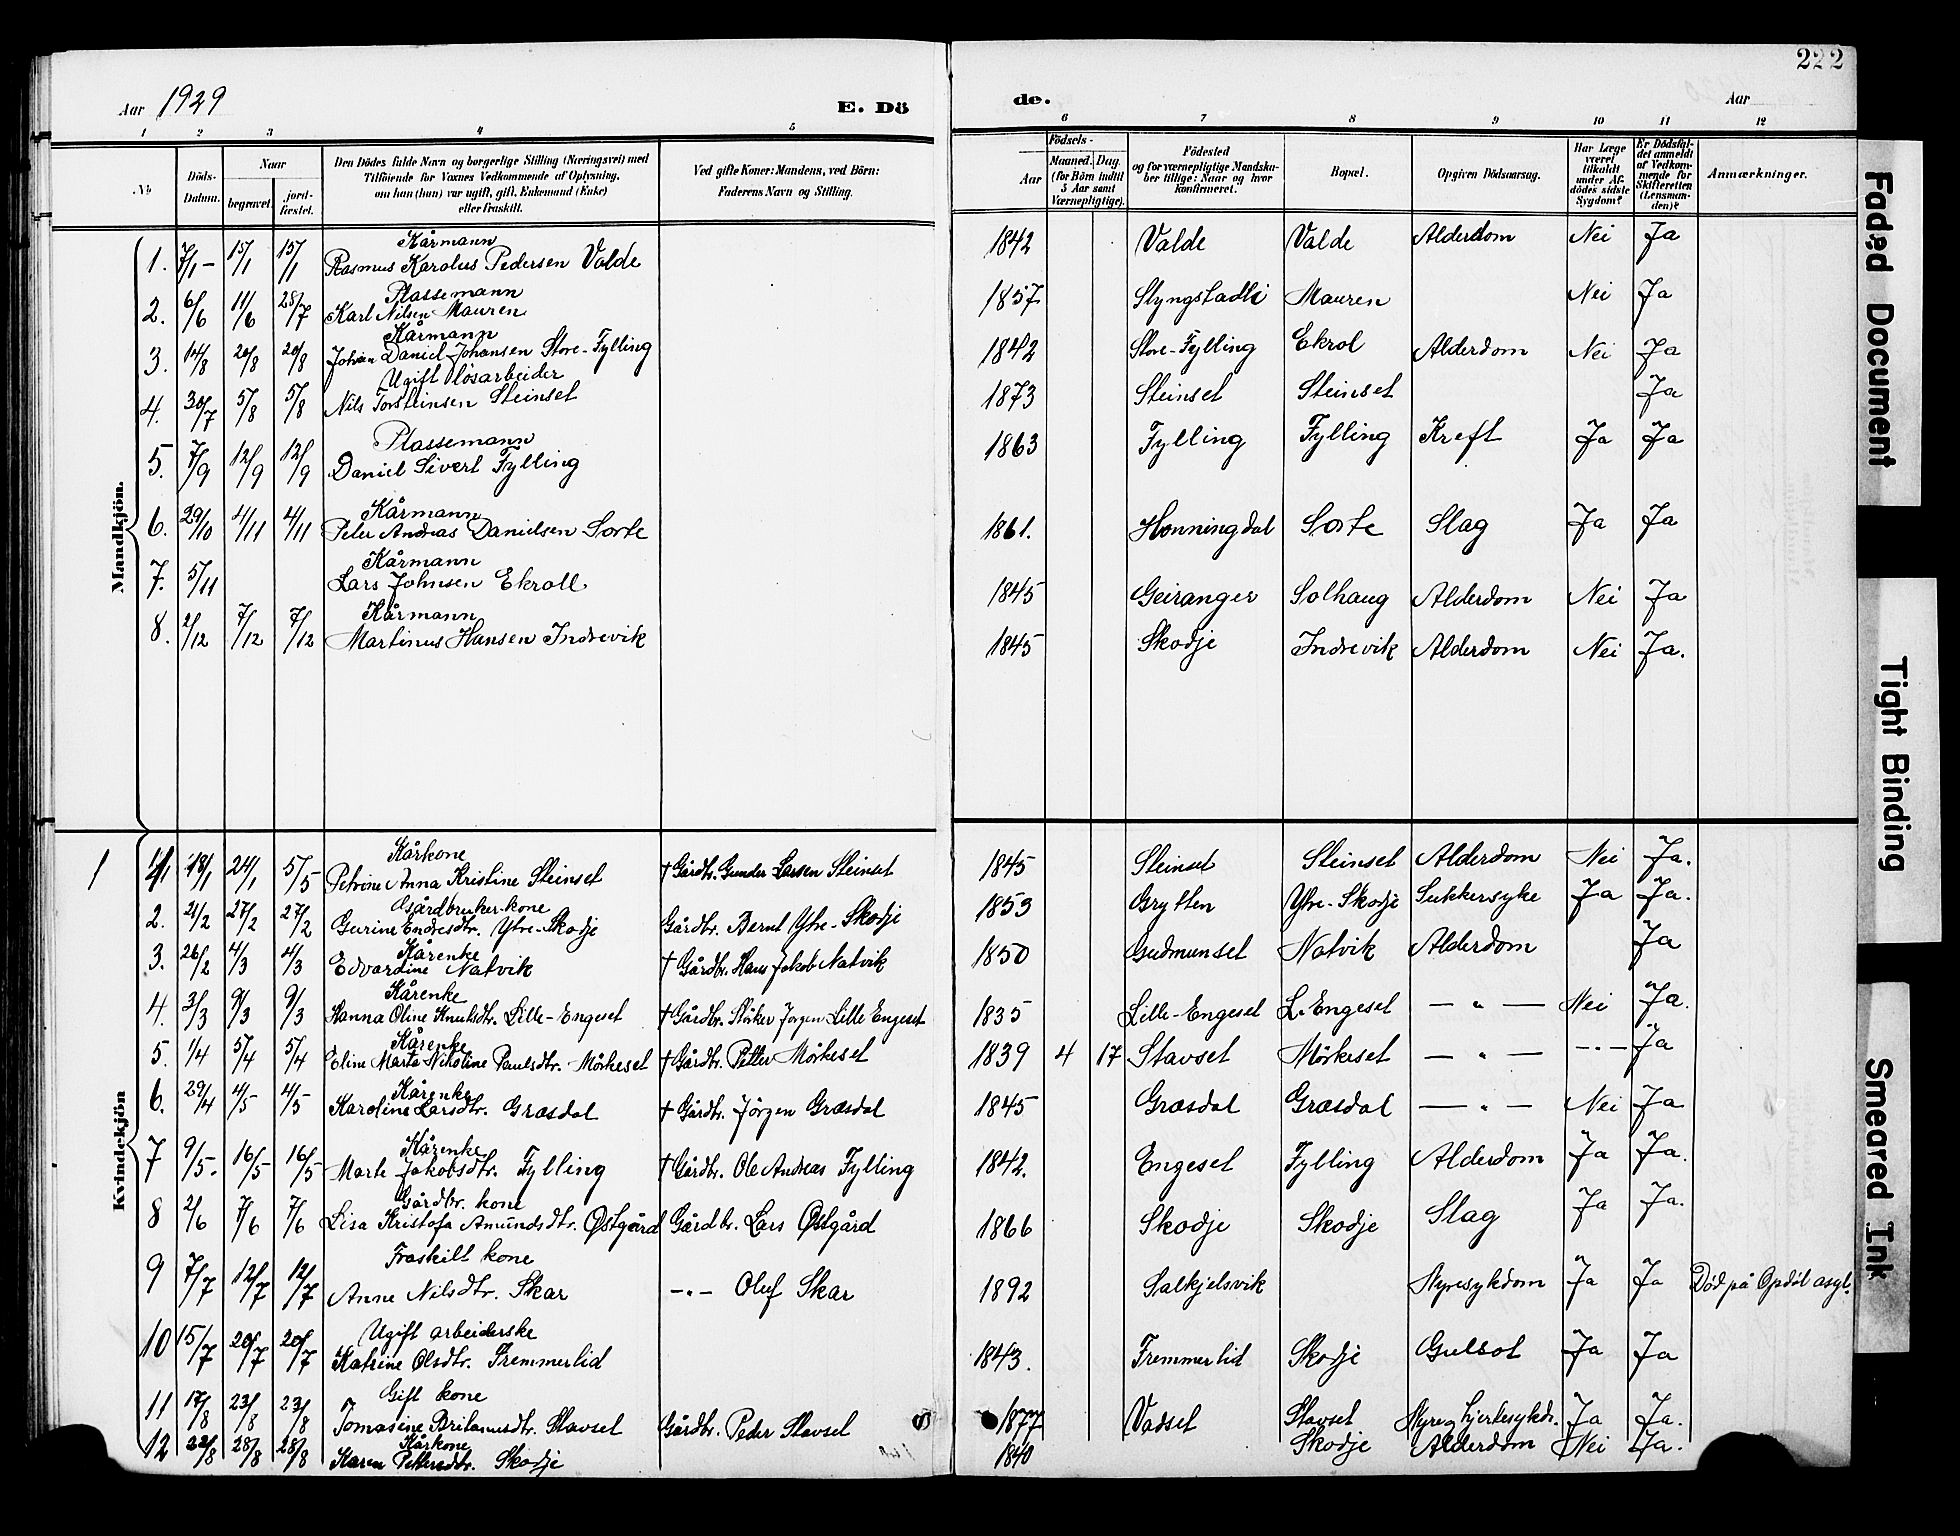 222
Aar 1929 E. Dö
de. Aar
1 2 3 4 5
6 7 8 9 10 11 12
No.
Döds-Datum.
Naar
begravet.
jordfæstet.
Den Dödes fulde Navn og borgerlige Stilling (Næringsvei) med
Tilföiende for Voxnes Vedkommende af Oplysning,
om han (hun) var ugift, gift, Enkemand (Enke)
eller fraskilt.
Ved gifte Koner: Mandens, ved Börn:
Faderens Navn og Stilling.
Födsels-
Aar
Maaned. Dag.
(for Börn indtil
5 Aar samt
Værnepligtige).
Födested
og for værnepligtige Mandskaber tillige: Naar og hvor
konfirmeret.
Bopæl.
Opgiven Dödsaarsag.
Har Læge
været
tilkaldt
under Afdödes sidste
Sygdom?
Er Dödsfaldet anmeldt
af Vedkommende for
Skifteretten
(Lensmanden)?
Anmærkninger.
Mandkjön.
Kårmann
1. 7/1 – 15/1 15/1 Rasmus Karolus Pedersen Valde 1842 Valde Valde Alderdom Nei Ja
Plassemann
2. 6/6 11/6 28/7 Karl Nilsen Mauren 1857 Slyngstadli Mauren Nei Ja
Kårmann
3. 14/8 20/8 20/8 Johan Daniel Johansen Store-Fylling 1842 Store-Fylling Ekrol Alderdom Nei Ja
Ugift lösarbeider
4. 30/7 5/8 5/8 Nils Torsteinsen Steinset 1873 Steinset Steinset Ja
Plassemann
5. 7/9 12/9 12/9 Daniel Sivert Fylling 1863 Fylling Fylling Kreft Ja Ja
Kårmann
6. 29/10 4/11 4/11 Peter Andreas Danielsen Sorte 1861. Honningdal Sorte Slag Ja Ja
Kårmann
7. 5/11 Lars Johnsen Ekroll 1845 Geiranger Solhaug Alderdom Nei Ja
Kårmann
8. 2/12 7/12 7/12 Martinus Hansen Indrevik 1845 Skodje Indrevik Alderdom Nei Ja.
Kvindekjön
1
Kårkone
1 18/1 24/1 5/5 Petrine Anna Kristine Steinset † Gårdbr. Gunder Larsen Steinset 1845 Steinset Steinset Alderdom Nei Ja.
Gårdbruker-kone
2. 21/2 27/2 27/2 Gurine Endresdtr. Ytre-Skodje Gårdbr. Bernt Ytre-Skodje 1853 Grytten Ytre-Skodje Sukkersyke Ja Ja.
Kårenke
3. 26/2 4/3 4/3 Edvardine Natvik † Gårdbr. Hans Jakob Natvik 1850 Gudmunset Natvik Alderdom Ja
Kårenke
4. 3/3 9/3 9/3 Hanna Oline Knutsdtr. Lille-Engeset † Gårdbr. Störker Jørgen Lille Engeset 1835 Lille-Engeset L. Engeset — " — Nei Ja.
Kårenke
5. 1/4 5/4 5/4 Eline Marta Nikoline Paulsdtr. Mörkeset † Gårdbr. Petter Mörkeset 1839 4 17 Stavset Mörkeset — " — – " – Ja
Kårenke
6. 29/4 4/5 4/5 Karoline Larsdtr. Græsdal † Gårdbr. Jörgen Græsdal 1845 Græsdal Græsdal — " — Nei Ja
Kårenke
7 9/5. 16/5 16/5 Marte Jakobsdtr. Fylling † Gårdbr. Ole Andreas Fylling 1842. Engeset Fylling Alderdom Ja Ja.
Gårdbr. kone
8 2/6 7/6 7/6 Lisa Kristofa Amundsdtr. Østgård Gårdbr. Lars Østgård 1866 Skodje Skodje Slag Ja Ja.
Fraskilt kone
9 7/7 12/7 12/7 Anne Nilsdtr. Skar – " – Oluf Skar 1892 Salkjelsvik Nyresykdom Ja Ja Död på Opdöl asyl.
Ugift arbeiderske
10 15/7 20/7 20/7 Katrine Olsdtr. Fremmerlid 1843. Fremmerlid Skodje Gulsot Ja Ja
Gift kone
11 17/8 23/8 23/8 Tomasine Britanusdtr. Stavset Gårdbr. Peder Stavset 1877 Vadset Stavset Nyre og hjertesykd. Ja Ja.
Kårkone
12 22/8 28/8 28/8 Karen Pettersdtr. Skodje 1840 Skodje Alderdom Nei Ja.
Faded Document
Tight Binding
Smeared Ink